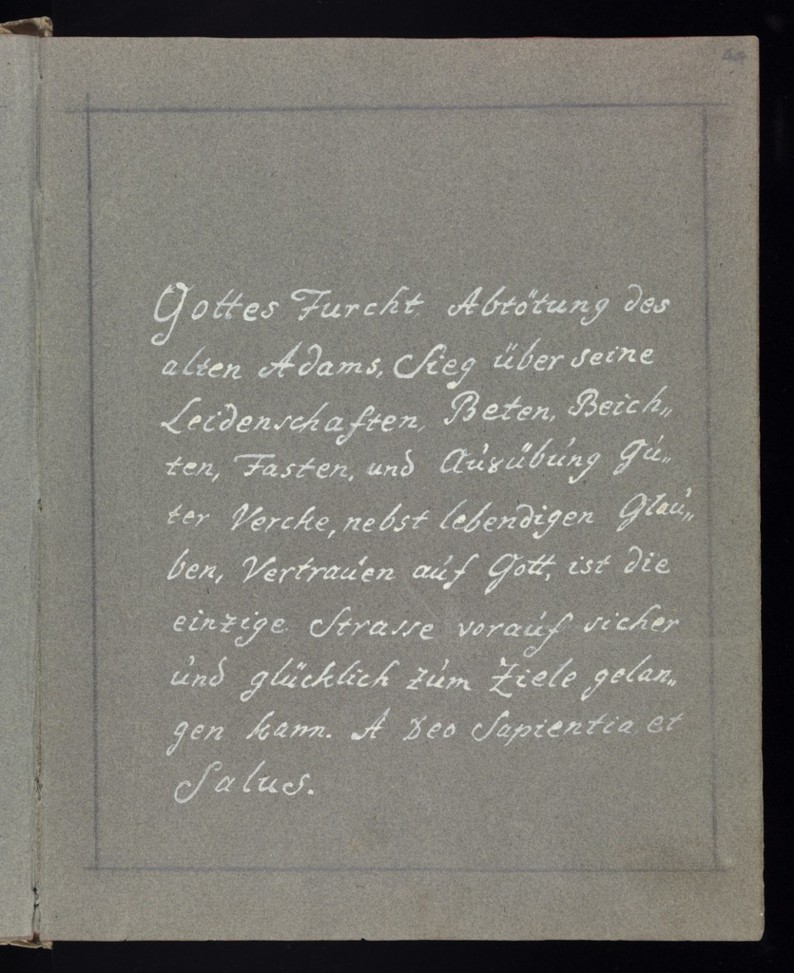 Gottes Furcht. Abtötung des
alten Adams, Sieg über seine
Leidenschaften, Beten, Beich„
ten, Fasten, und Ausübung Gu„
ter Vercke, nebst lebendigen Glau„
ben, Vertrauen auf Gott, ist die
einzige Strasse vorauf sicher
und glücklich zum Ziele gelan„
gen kann. A Deo Sapientia et
Salus.